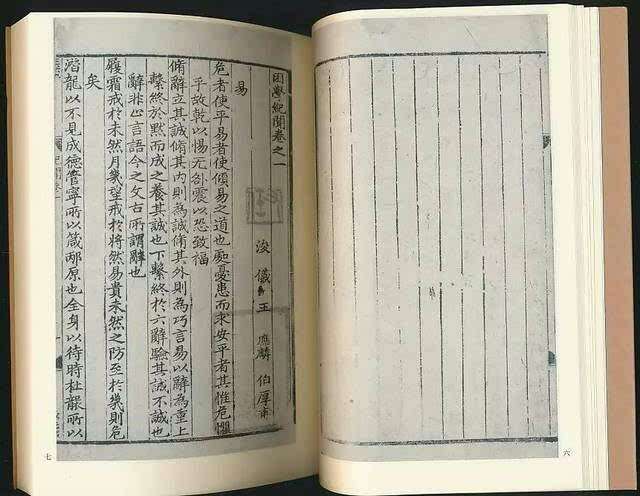 困學紀聞卷之一
浚儀王 應麟 伯厚甫
易
危者使平易者使傾易之道也處憂患而求安平者其惟危懼
乎故乾以惕无咎震以恐致福
脩辭立其誠脩其內則為誠脩其外則為巧言易以辭為重上
繫終於默而成之養其誠也下繫終於六辭驗其誠不誠也
辭非止言語今之文古所謂辭也
履霜戒於未然月幾望戒於將然易貴未然之防至於幾則危
矣
潛龍以不見成德管寧所以箴邴原也全身以待時杜襲所以
六
七